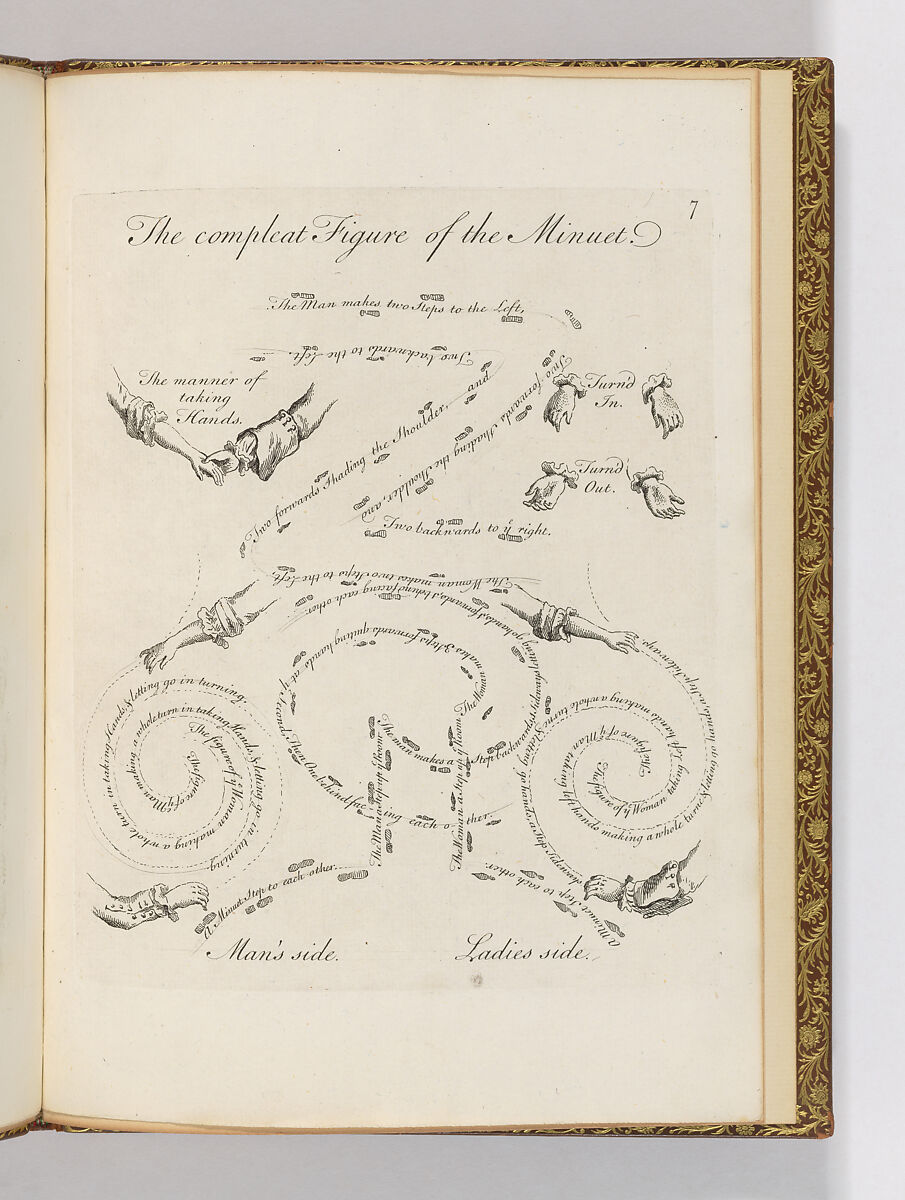 7
The compleat Figure of the Minuet.
The Man makes two Steps to the Left,
Two backwards to the left.
The manner of
taking
Hands.
Two forwards Shading the Shoulder, and
Two forwards Shading the Shoulder, and
Turn'd
In.
Turn'd
Out.
Two backwards to yͤ right.
The Woman makes two Steps to the Left,
forwards & behind facing each other.
makes 3 Steps forwards quiting hands at yͤ Second, Then One behind fac
ing each other.
The Woman
The man makes a
The Man a Step up yͤ Room
The Woman a Step up yͤ Room
letting go hands, a Step Sideways
whole turn in taking Hands & letting go in turning.
The figure of yͤ Man making a whole turn in taking Hands & letting go in turning
The figure of yͤ Woman making a whole turn in taking Hands & letting go in turning
The figure of yͤ Man taking left hands making a whole turn & letting go hands
The figure of yͤ Woman taking left hands making a whole turn & letting go hands
A Minuet Step to each other.
a Minuet Step to each other.
Man's side.
Ladies side.